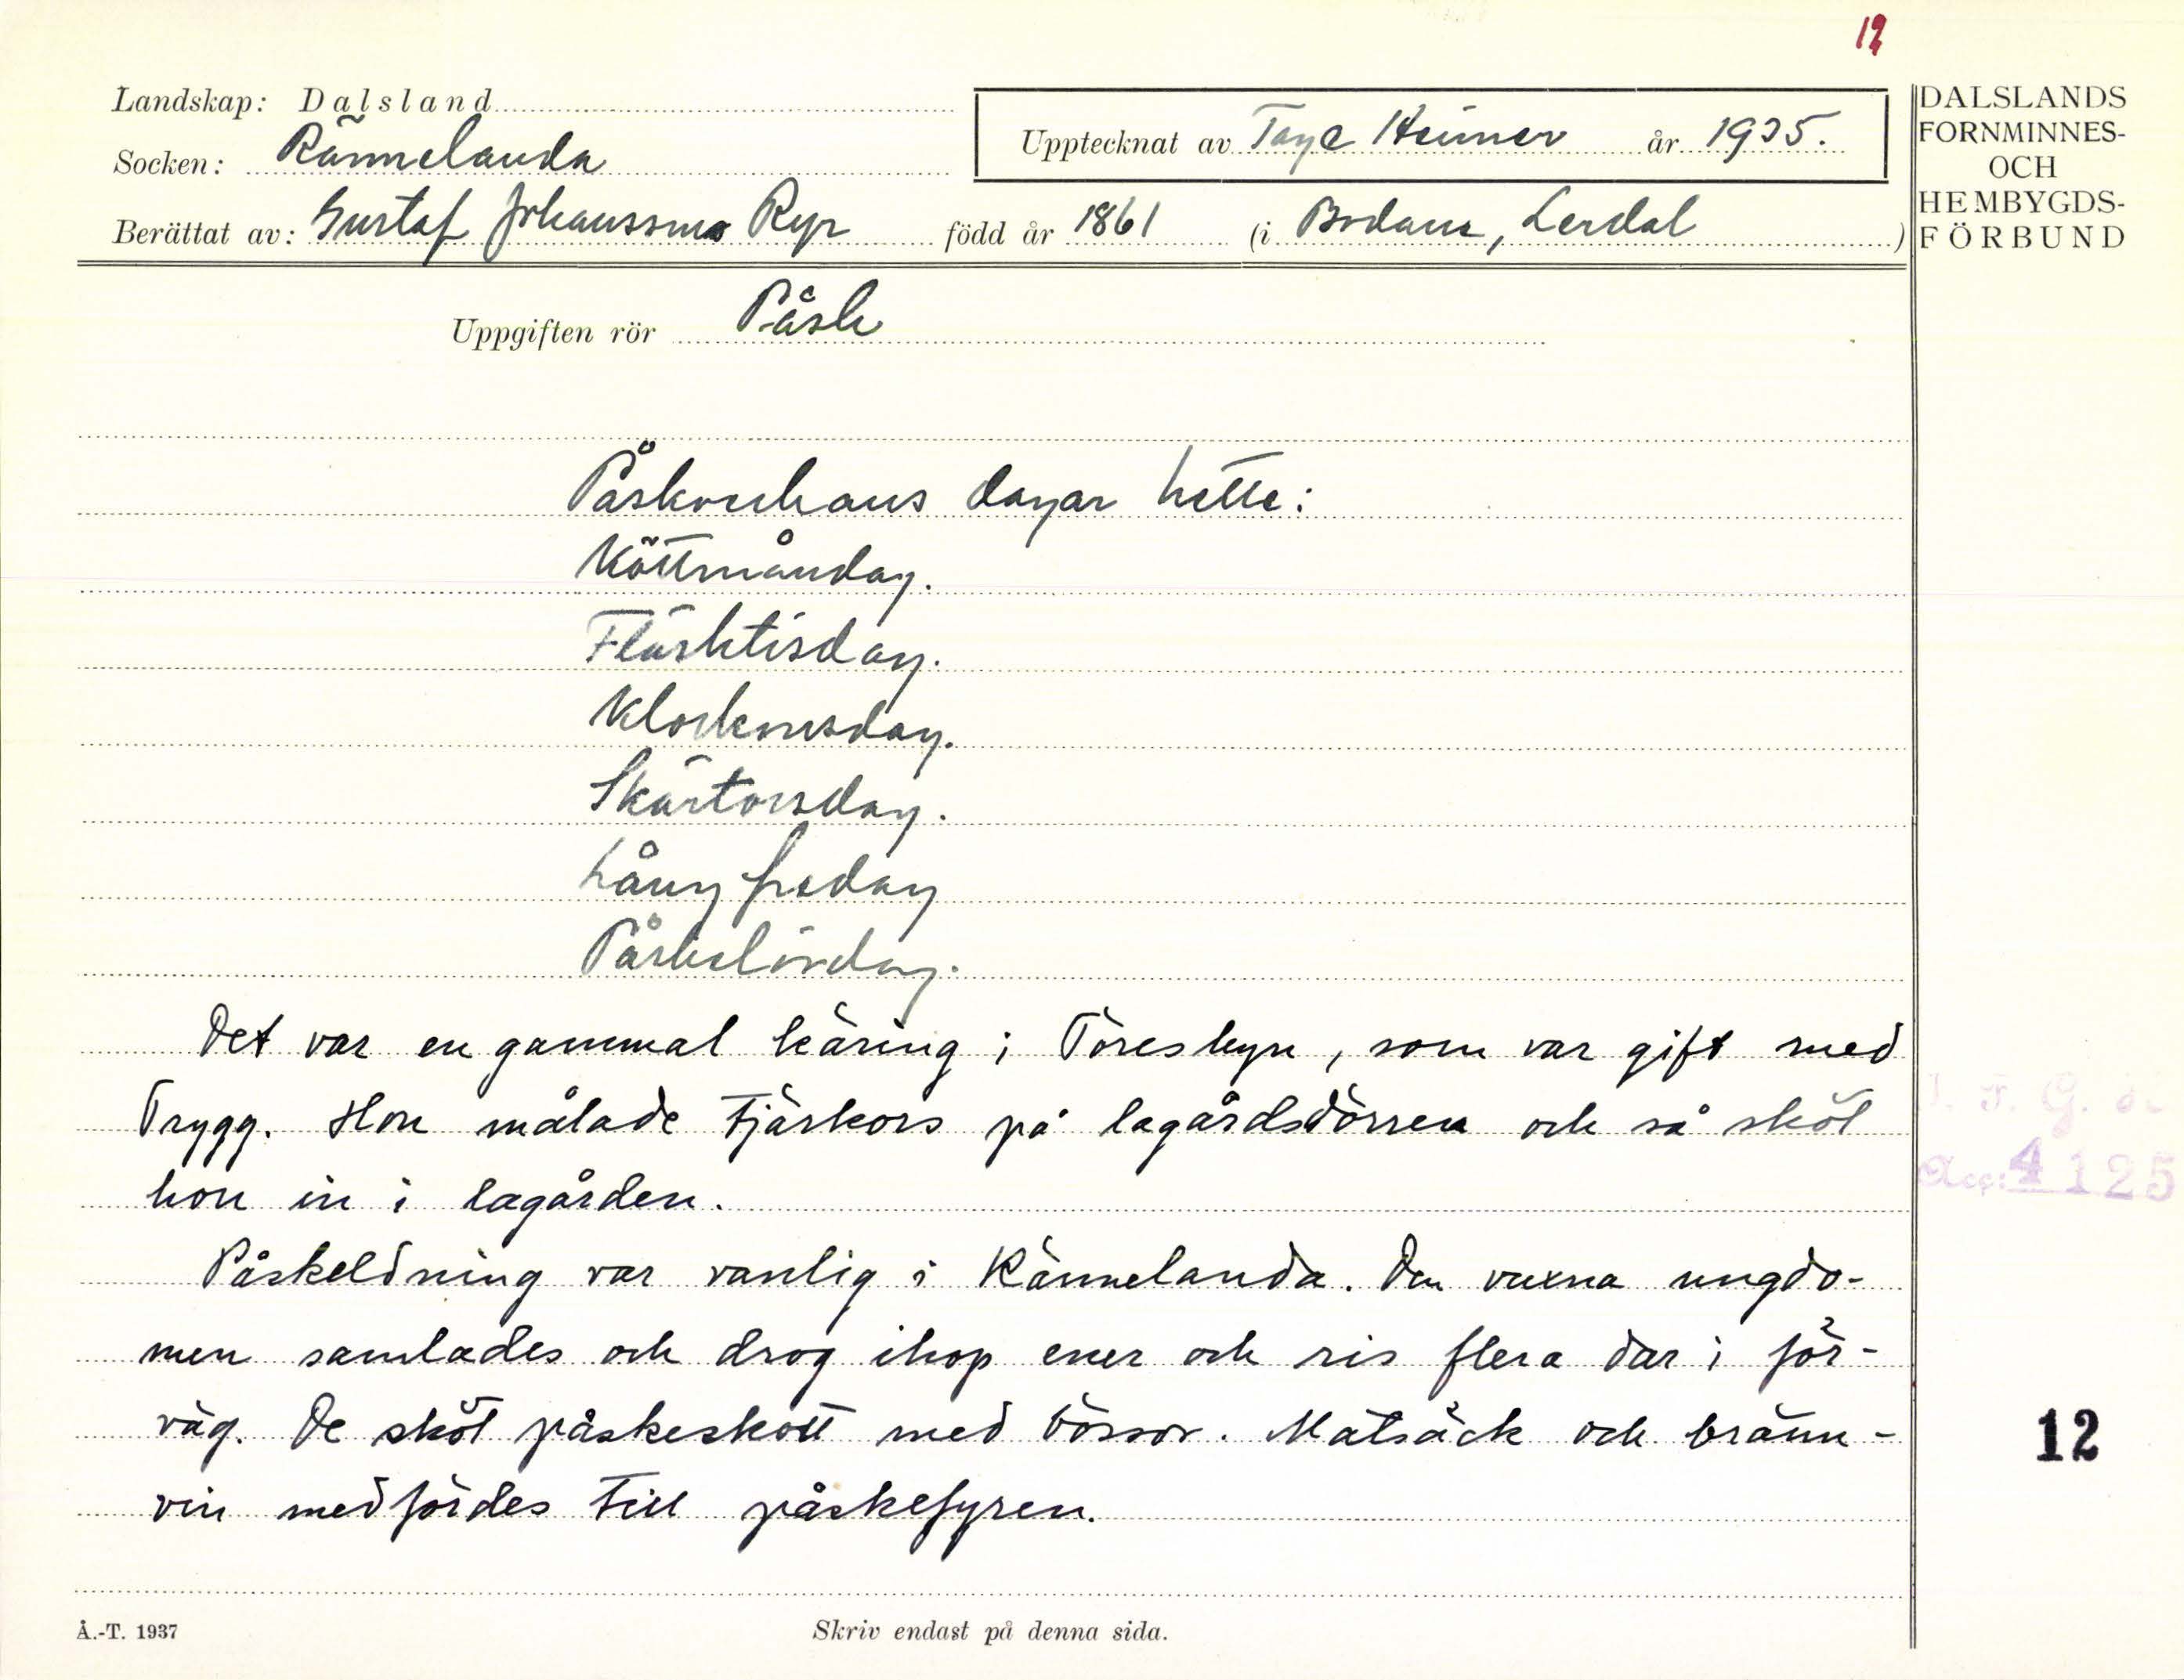 12
Landskap: Dalsland
Socken: Rännelanda
Berättat av: Gustaf Johansson Ryr född år 1861 (i Bodane, Lerdal)
Upptecknat av Tage Heimer år 1935.
DALSLANDS
FORNMINNES-
OCH
HEMBYGDS-
FÖRBUND
Uppgiften rör Påsk
Påskveckans dagar hette:
Köttmåndag.
Fläsktisdag.
Klockonsdag.
Skärtorsdag.
Lång fredag
Påskelördag.
Det var en gammal käring i Töresbyn, som var gift med
Trygg. Hon målade tjärkors på lagårdsdörren och så sköt
hon in i lagården.
Påskeldning var vanlig i Rännelanda. Den vuxna ungdo-
men samlades och drog ihop ener och ris flera dar i för-
väg. De sköt påskeskott med bössor. Matsäck och bränn-
vin medfördes till påskefyren.
Acc: 4125
12
Å.-T. 1937
Skriv endast på denna sida.